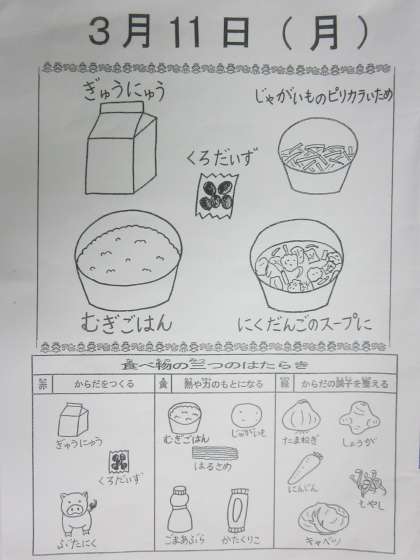 3月11日(月)
ぎゅうにゅう
じゃがいものピリカラいため
くろだいず
むぎごはん
にくだんごのスープに
食べ物の三つのはたらき
赤 からだをつくる
黄 熱や力のもとになる
緑 からだの調子を整える
ぎゅうにゅう
くろだいず
ぶたにく
むぎごはん
じゃがいも
はるさめ
ごまあぶら
かたくりこ
たまねぎ
しょうが
にんじん
もやし
キャベツ